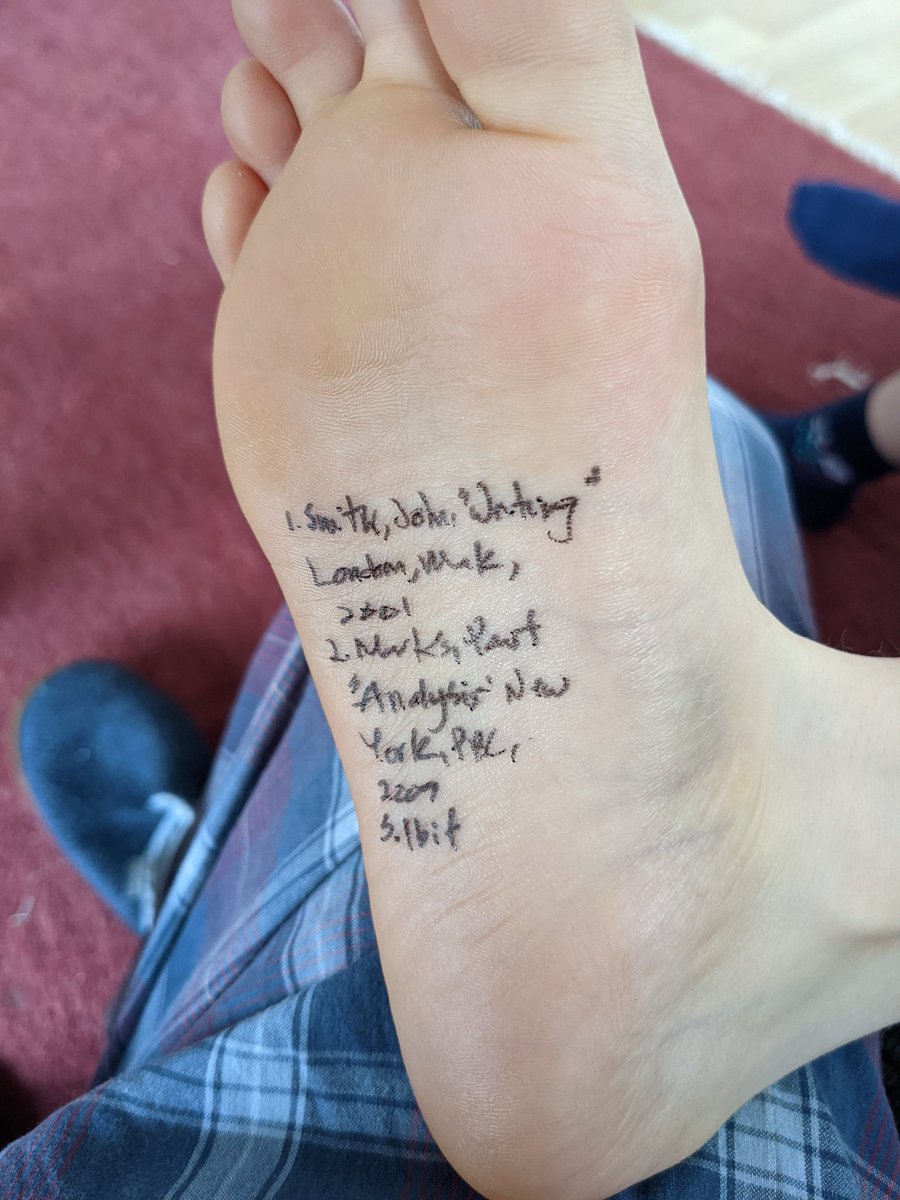 1. Smith, John, "Writing"
London, Mak,
2001
2. Marks, Part
"Analysis" New
York, PBC,
2209
3. Ibit